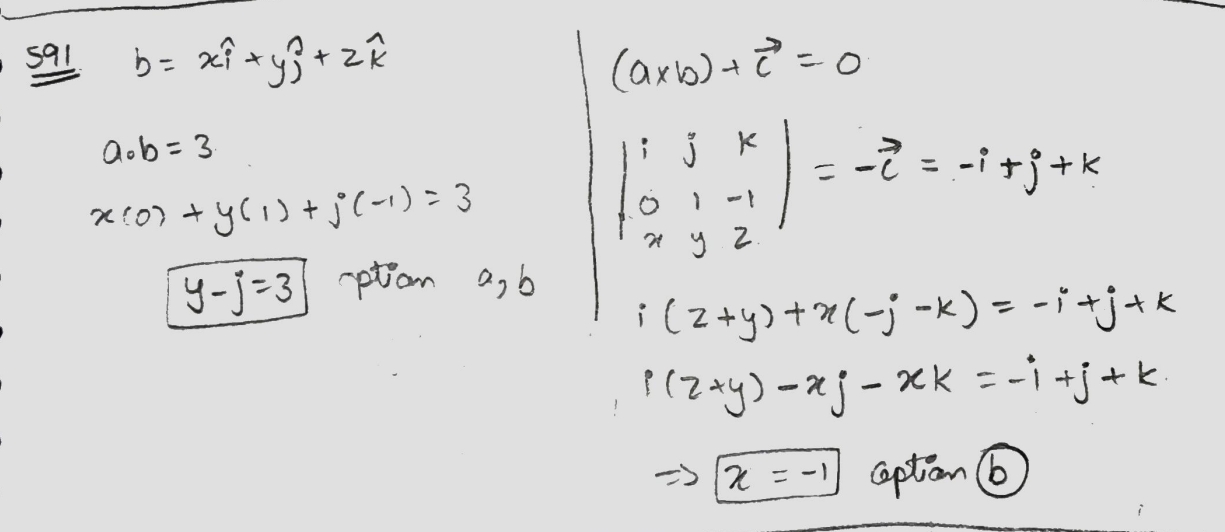 591 b = xî + yĵ + zk̂
a∘b = 3
x(0) + y(1) + j(-1) = 3
y-j=3 option a, b
(a×b) + c⃗ = 0
| i j k |
| 0 1 -1 | = -c⃗ = -i + j + k
| x y z |
i(z+y) + x(-j -k) = -i + j + k
i(z+y) - xj - xk = -i + j + k.
=> x = -1 option b